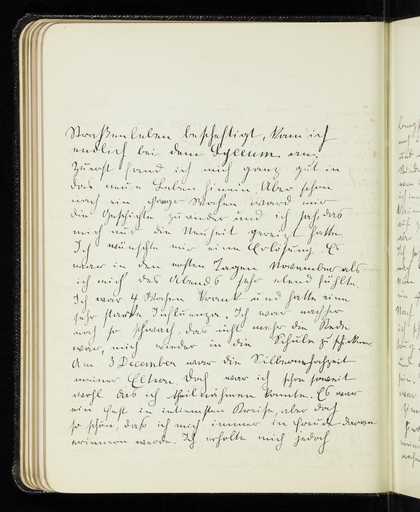 Straßenleben beschäftigt, kam ich
endlich bei dem Lyceum an.
Zuerst fand ich mich ganz gut in
das neue Leben hinein. Aber schon
nach ein paar Wochen ward mir
die Geschichte zuwider und ich sah, das
mich nur die Neuheit gereizt hatte.
Ich wünschte mir eine Erlösung. Es
war in den ersten Tagen November als
ich mich des Abends sehr elend fühlte.
Ich war 4 Wochen krank und hatte eine
sehr starke Influenza. Ich war nachher
noch so schwach, das nicht mehr die Rede
war, mich wieder in die Schule zu schicken.
Am 3 December war die Silberne Hochzeit
meiner Eltern. Doch war ich schon soweit
wohl das ich theilnehmen konnte. Es war
ein Fest in intimsten Kreise, aber doch
so schön, daß ich mich immer in Freude daran
erinnern werde. Ich erholte mich jedoch